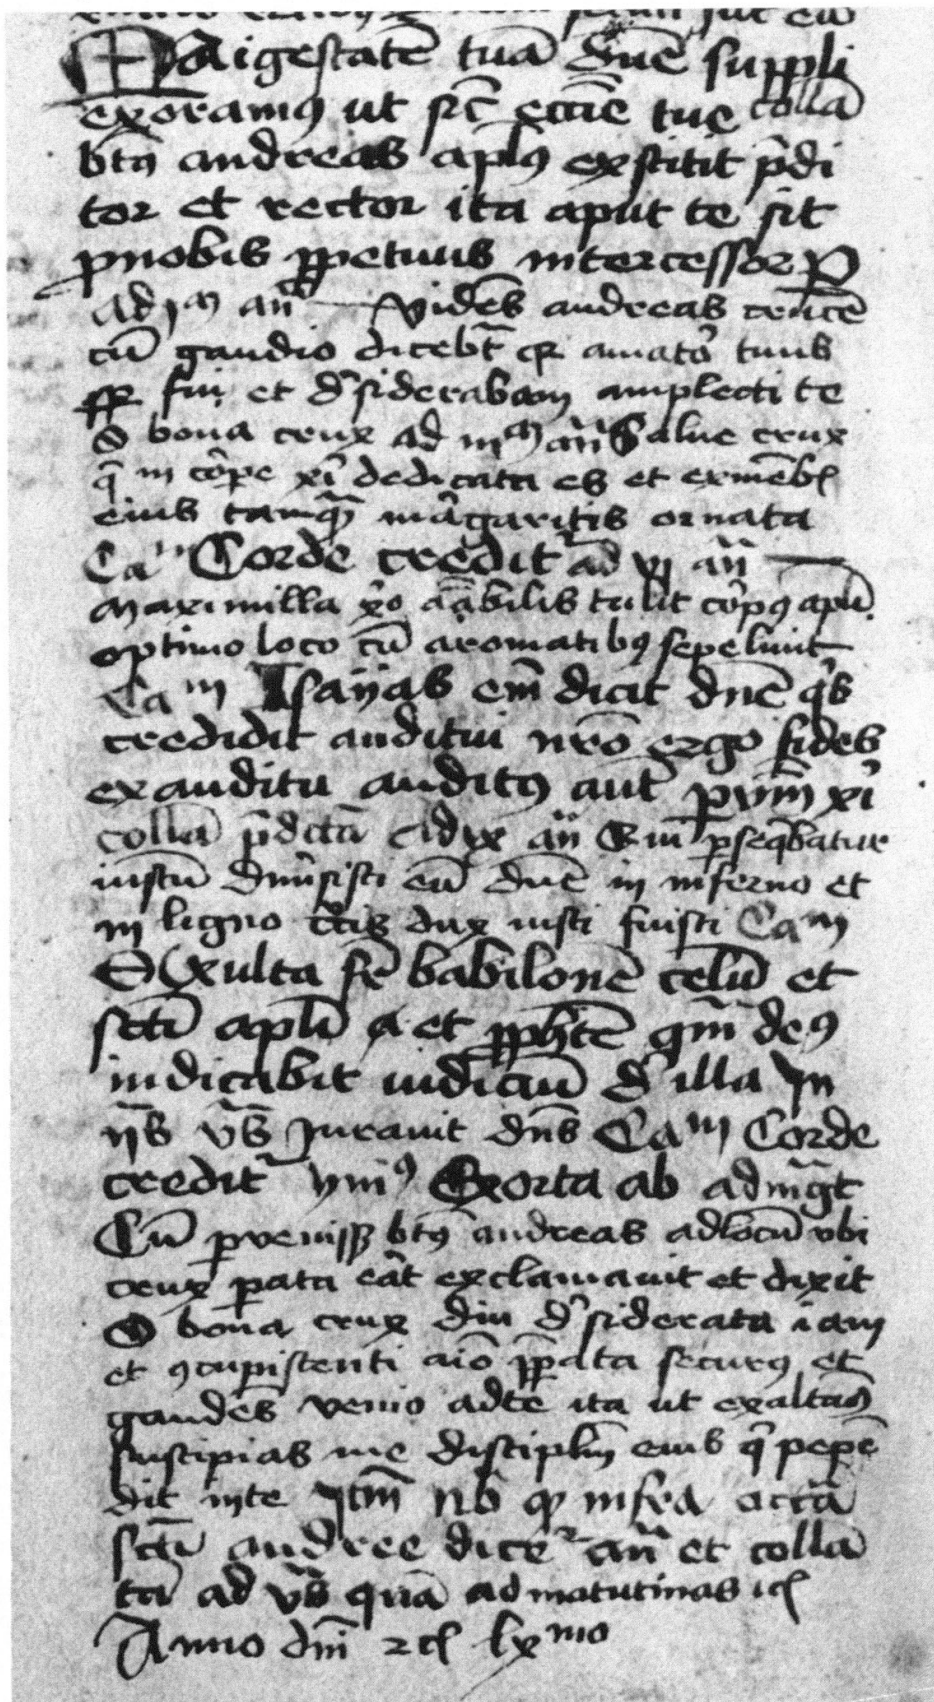 Maigestatē tuā dn̄e suppli
exoramꝰ ut sic̄ eccīe tue collā
btꝰ andreas apl̄ꝰ exstitit p̄di
tor et rector ita aput te sit
ꝓ nobis ꝑpetuus intercessor P
ad jᵐ an̄ Vidēs andreas crucē
cū gaudio diceb̄t qꝛ amator̉ tuus
sꝑ fui et d̉siderabam amplecti te
O bona crux ad iijᵐ an̄ Salue crux
q̄ in cor̉pe xp̄i dedicata es et ex mēbꝭ
eius tamqᷓ mar̉garitis ornata
Caᵐ Corde creditr̉ ad vj an̄
Maximilla xp̄o amābilis tulit cor̉pꝰ apl̄i
optimo loco cū aromatibꝰ sepeliuit
Caᵐ Isayas em̄ dicit dn̄e qͥs
credidit auditui nrō ergo fides
ex auditu auditꝰ aut̄ ꝑ vm̄ xp̄i
collā p̄dctā Ad ix an̄ Qui ꝑseqͤbatur
iustū dimͥsisti eū dn̄e in inferno et
in ligno crūs dux iusti fuisti Caᵐ
Exulta sr̄ babilonē celū et
sctī aplī et ꝓphtē qm̄ deꝰ
iudicabit iudiciū d̉ illa In
ijs vs̄ Jurauit dn̄s Caᵐ Corde
creditr̉ ymꝰ Exorta ab ad mḡt
Cū ꝑuenissꝫ btꝰ andreas ad locū vbi
crux ꝑata erāt exclamauit et dixit
O bona crux diu d̉siderata iam
et ꝯcupiscenti aīo ꝓpata securꝰ et
gaudēs venio ad te ita ut exaltās
suscipias me disciplm̄ eius qͥ pepē
dit in te Itm̄ nō ꝙ infra octā
sctī andree dicer̉ an̄ et collā
tā ad vs̄ quā ad matutinas ꝛcꝭ
Anno dn̄i ꝛcꝭ lxᵐᵒ